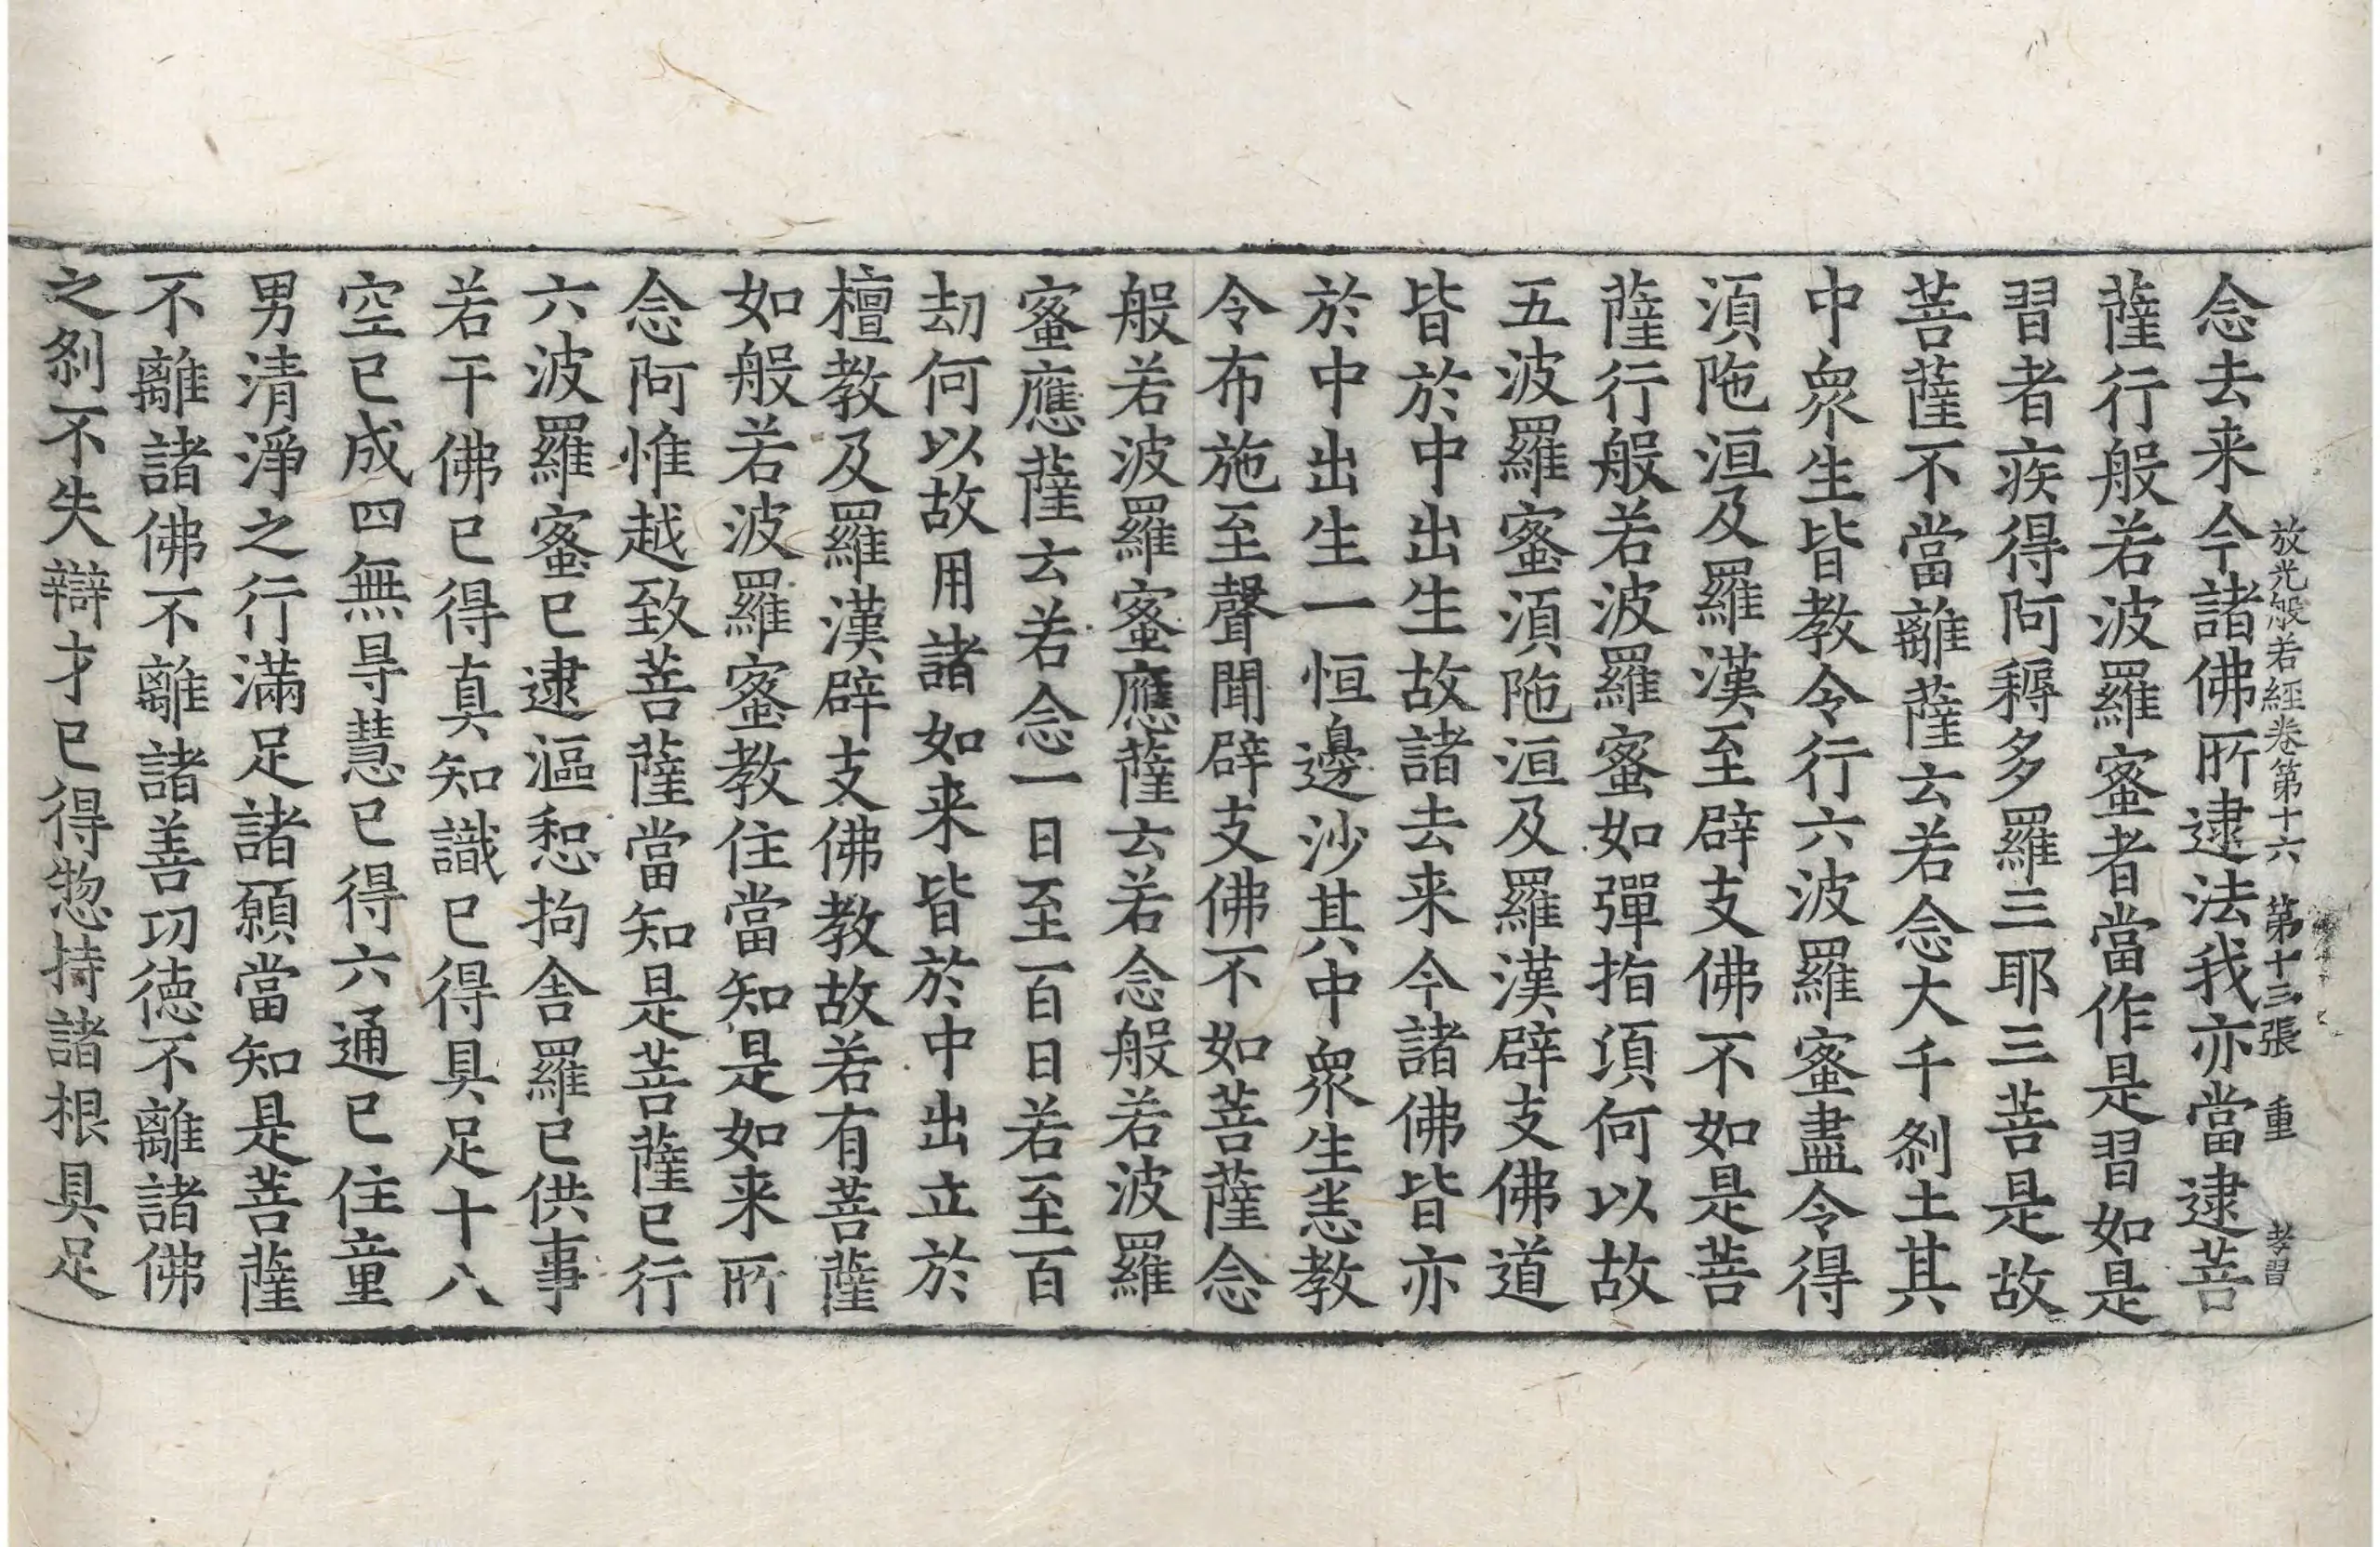 放光般若經卷第十六　第十三張　重　孝習
念去来今諸佛所逮法我亦當逮菩
薩行般若波羅蜜者當作是習如是
習者疾得阿耨多羅三耶三菩是故
菩薩不當離薩云若念大千剎土其
中衆生皆教令行六波羅蜜盡令得
湏陁洹及羅漢至辟支佛不如是菩
薩行般若波羅蜜如彈指頃何以故
五波羅蜜湏陁洹及羅漢辟支佛道
皆於中出生故諸去来今諸佛皆亦
於中出生一恒邊沙其中衆生悉教
令布施至聲聞辟支佛不如菩薩念
般若波羅蜜應薩云若念般若波羅
蜜應薩云若念一日至百日若至百
劫何以故用諸如来皆於中出立於
檀教及羅漢辟支佛教故若有菩薩
如般若波羅蜜教住當知是如来所
念阿惟越致菩薩當知是菩薩已行
六波羅蜜已逮漚惒拘舍羅已供事
若干佛已得真知識已得具足十八
空已成四無㝵慧已得六通已住童
男清淨之行滿足諸願當知是菩薩
不離諸佛不離諸善功德不離諸佛
之剎不失辯才已得惣持諸根具足